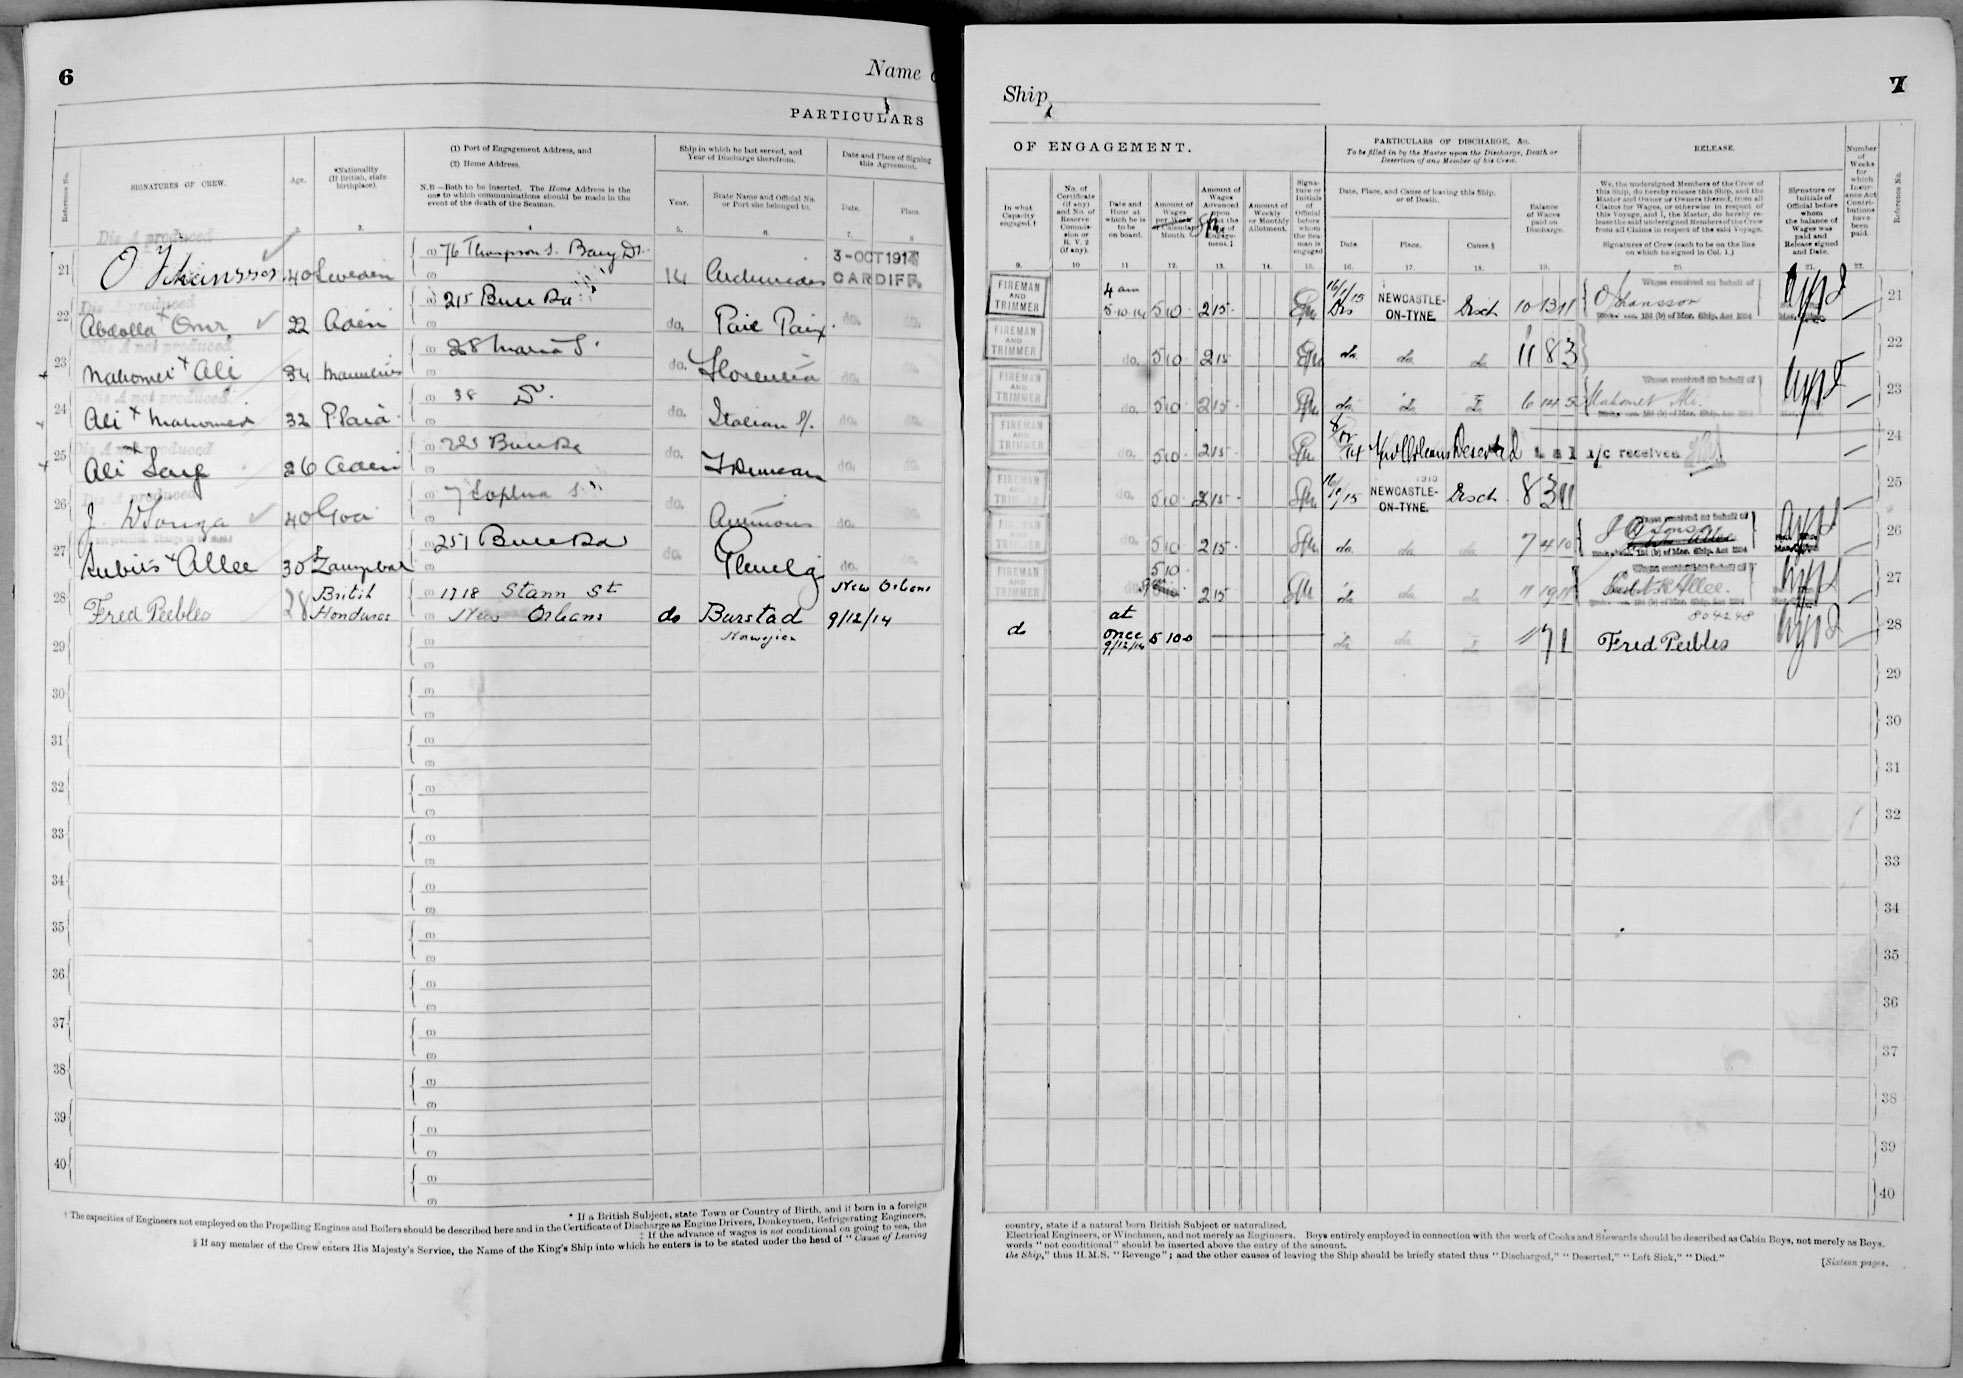 6
Name
PARTICULARS
Reference No.
SIGNATURES OF CREW.
Age.
*Nationality
(If British, state
birthplace).
(1) Port of Engagement Address, and
(2) Home Address.
N.B—Both to be inserted. The Home Address is the
one to which communications should be made in the
event of the death of the Seaman.
Ship in which he last served, and
Year of Discharge therefrom.
Year.
State Name and Official No.
or Port she belonged to.
Date and Place of Signing
this Agreement.
Date.
Place.
2. 3. 4 5. 6. 7. 8
Dis A produced
21 O Johansson 40 Sweden (1) 76 Thompson S. Barry D. 14 3-OCT 1914 CARDIFF.
Dis A produced
22 Abdolla x Omr 22 Aden (1) 215 Bute Rd do. Paix do. do.
Dis A not produced
23 Mahomed x Ali 34 (1) 28 Maria S. do. Florencia do. do.
Dis A not produced
24 Ali x Mahomed 32 (1) 38 Do. do. Italian do. do.
Dis A not produced
25 Ali x 26 Aden (1) Bute Rd do. do. do.
Dis A produced
26 J. D'Souza 40 Goa (1) 7 Sophia S. do. do. do.
27 x Allee 30 Zanzibar (1) 251 Bute Rd do. Glenelg do. do.
28 Fred Peebles 28 British Honduras (1) 1718 Stann St New Orleans do Burstad Norwegian 9/12/14 New Orleans
29
30
31
32
33
34
35
36
37
38
39
40
* If a British Subject, state Town or Country of Birth, and if born in a foreign
† The capacities of Engineers not employed on the Propelling Engines and Boilers should be described here and in the Certificate of Discharge as Engine Drivers, Donkeymen, Refrigerating Engineers,
‡ If the advance of wages is not conditional on going to sea, the
§ If any member of the Crew enters His Majesty's Service, the Name of the King's Ship into which he enters is to be stated under the head of "Cause of Leaving
Ship
7
OF ENGAGEMENT.
PARTICULARS OF DISCHARGE, &c.
To be filled in by the Master upon the Discharge, Death or
Desertion of any Member of his Crew.
RELEASE.
In what
Capacity
engaged.†
No. of
Certificate
(if any)
and No. of
Reserve
Commis-
sion or
R. V. 2
(if any).
Date and
Hour at
which he is
to be
on board.
Amount of
Wages
per Week
or Calendar
Month.
Amount of
Wages
Advanced
upon
the
Engage-
ment.‡
Amount of
Weekly
or Monthly
Allotment.
Signa-
ture or
Initials
of
Official
before
whom
the Sea-
man is
engaged
Date, Place, and Cause of leaving this Ship,
or of Death.
Date.
Place.
Cause.§
Balance
of Wages
paid on
Discharge.
We, the undersigned Members of the Crew of
this Ship, do hereby release this Ship, and the
Master and Owner or Owners thereof, from all
Claims for Wages, or otherwise in respect of
this Voyage, and I, the Master, do hereby re-
lease the said undersigned Members of the Crew
from all Claims in respect of the said Voyage.
Signatures of Crew (each to be on the line
on which he signed in Col. 1.)
Signature or
Initials of
Official before
whom
the balance of
Wages was
paid and
Release signed
and Date.
Number
of
Weeks
for
which
Insur-
ance Act
Contri-
butions
have
been
paid.
Reference No.
9. 10 11 12. 13. 14. 15. 16. 17. 18. 19. 20. 21. 22.
FIREMAN AND TRIMMER 4 am 5.10.14 5 10 2 15 16/1/15 NEWCASTLE-ON-TYNE. Disch 10 13 11 O Johansson 21
Wages received on behalf of
FIREMAN AND TRIMMER do. 5 10 2 15 do do do 11 8 3 22
FIREMAN AND TRIMMER do. 5 10 2 15 do do do 6 14 5 Mahomet Ali. 23
Wages received on behalf of
FIREMAN AND TRIMMER do. 5 10 2 15 New Orleans Deserted a/c received 24
FIREMAN AND TRIMMER do. 5 10 2 15 16/1/15 NEWCASTLE-ON-TYNE. Disch 8 3 11 25
FIREMAN AND TRIMMER do. 5 10 2 15 do do do 7 4 10 26
Wages received on behalf of
FIREMAN AND TRIMMER do 5 10 2 15 do do do 11 19 11 Allee. 27
Wages received on behalf of
804248
do at once 9/12/14 5 10 0 do do do 11 7 1 Fred Peebles 28
29
30
31
32
33
34
35
36
37
38
39
40
country, state if a natural born British Subject or naturalized.
Electrical Engineers, or Winchmen, and not merely as Engineers. Boys entirely employed in connection with the work of Cooks and Stewards should be described as Cabin Boys, not merely as Boys.
words "not conditional" should be inserted above the entry of the amount.
the Ship," thus H.M.S. "Revenge"; and the other causes of leaving the Ship should be briefly stated thus "Discharged," "Deserted," "Left Sick," "Died."
[Sixteen pages.